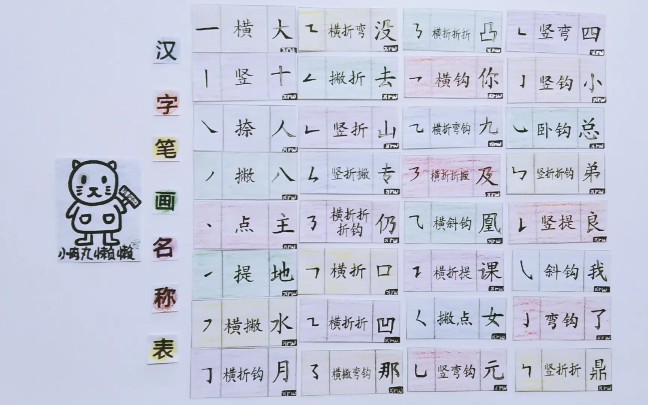 汉字笔画名称表
小肉丸懒懒
㇐ 横 大
㇑ 竖 十
㇏ 捺 人
㇒ 撇 八
㇔ 点 主
㇀ 提 地
㇇ 横撇 水
㇆ 横折钩 月
㇍ 横折弯 没
㇜ 撇折 去
㇗ 竖折 山
ㄣ 竖折撇 专
㇡ 横折折折钩 仍
㇕ 横折 口
㇅ 横折折 凹
㇌ 横撇弯钩 那
㇎ 横折折折 凸
㇖ 横钩 你
㇈ 横折弯钩 九
㇋ 横折折撇 及
⺄ 横斜钩 凰
㇊ 横折提 课
㇛ 撇点 女
㇟ 竖弯钩 元
㇄ 竖弯 四
㇚ 竖钩 小
㇃ 卧钩 总
㇉ 竖折折钩 弟
㇙ 竖提 良
㇂ 斜钩 我
㇁ 弯钩 了
㇞ 竖折折 鼎